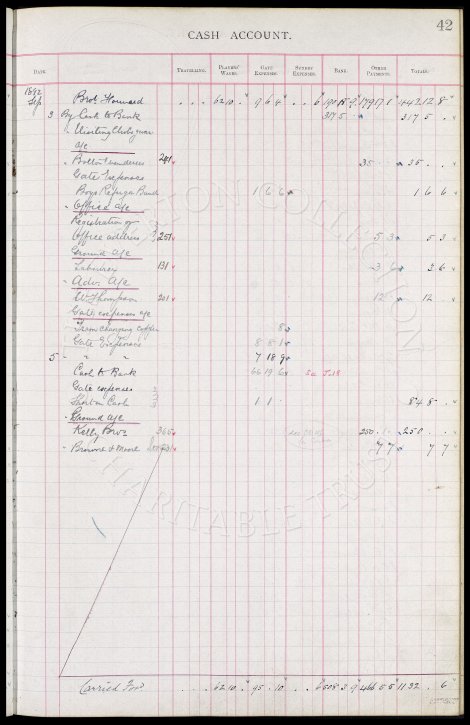 42
CASH ACCOUNT.
DATE TRAVELLING. PLAYERS' WAGES. GATE EXPENSES. SUNDRY EXPENSES. BANK. OTHER PAYMENTS. TOTALS.
1892
Sep Brot Forward 62 10 9 6 4 6 442 12 8
3 By Cash to Bank 317 5 317 5
Visiting Clubs
a/c
Bolton Wanderers 241 35 35
Gate Expenses
Boys Refuge Band 1 6 6 1 6 6
Office a/c
Registration of
Office address 251 5 3 5 3
Ground a/c
Labourer 131 3 6 3 6
Advg a/c
W Thompson 201 12 12
Gate expenses a/c
Tram changing copper 8
Gate Expenses 8 8 1
5 " " " 7 18 9
Cash to Bank 66 19 6
Gate expenses
Short in Cash 1 1 84 8
Ground a/c
Kelly Bros 365 250 250
Browne & Moore 7 7 7 7
Carried For 62 10 95 10 6 508 3 9 466 5 5 1132 6
COLLECTION
CHARITABLE TRUST